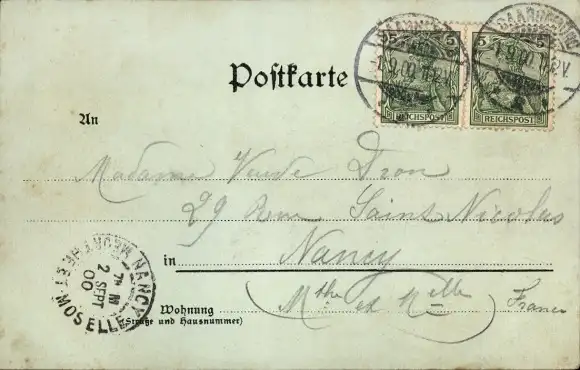 Postkarte
5 5
REICHSPOST REICHSPOST
-1.9.00 11-12V.
1.9.00 11-12V.
An
Madame Veuve Dron
29 Rue Saint Nicolas
in Nancy
(Mthe et Melle) France
Wohnung
(Straße und Hausnummer)
NANCY
MEURTHE-ET-MOSELLE
7E M
2 SEPT
00